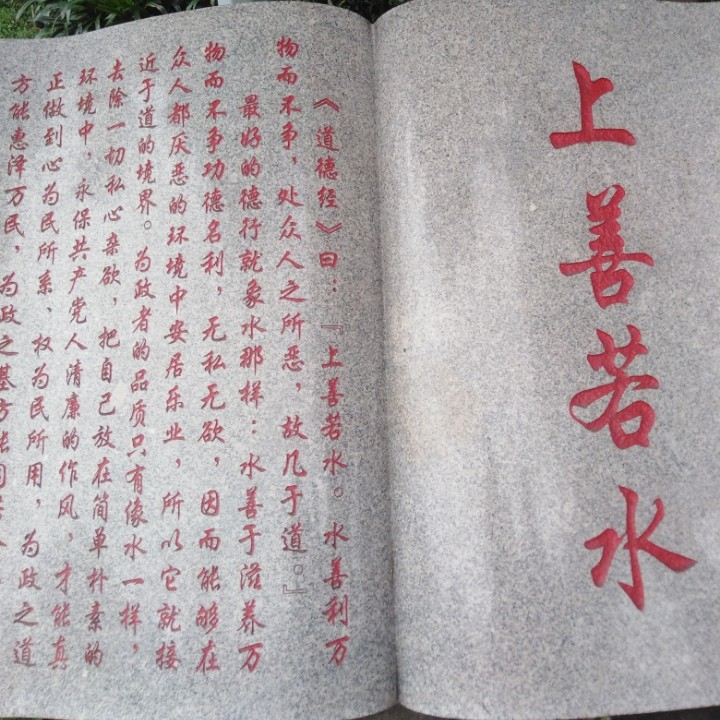 上善若水
《道德经》曰：『上善若水。水善利万
物而不争，处众人之所恶，故几于道。』
最好的德行就象水那样：水善于滋养万
物而不争功德名利，无私无欲，因而能够在
众人都厌恶的环境中安居乐业，所以它就接
近于道的境界。为政者的品质只有像水一样，
去除一切私心杂欲，把自己放在简单朴素的
环境中，永保共产党人清廉的作风，才能真
正做到心为民所系、权为民所用，为政之道
方能惠泽万民，为政之基方